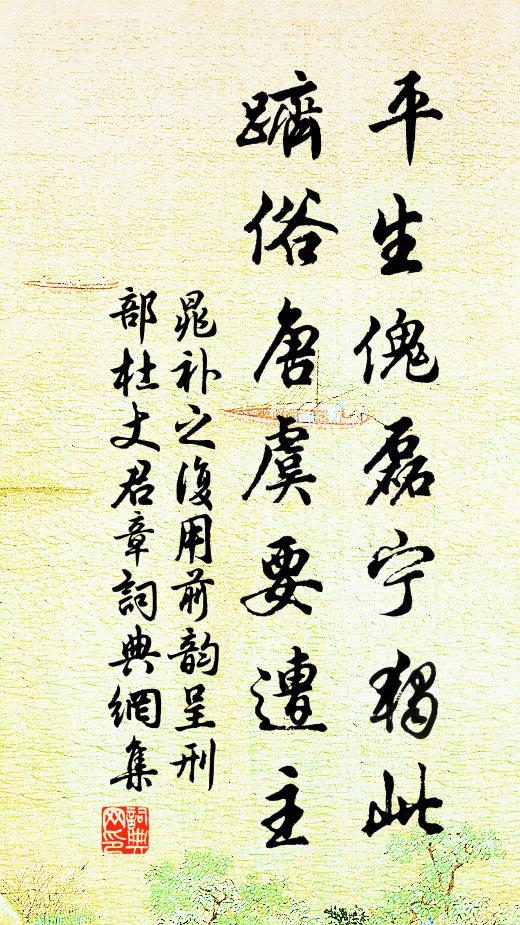 平生傀磊宁独此
躋俗唐虞要遭主
晁补之復用前韵呈刑
部杜丈君章詞典網集
詞典
网印